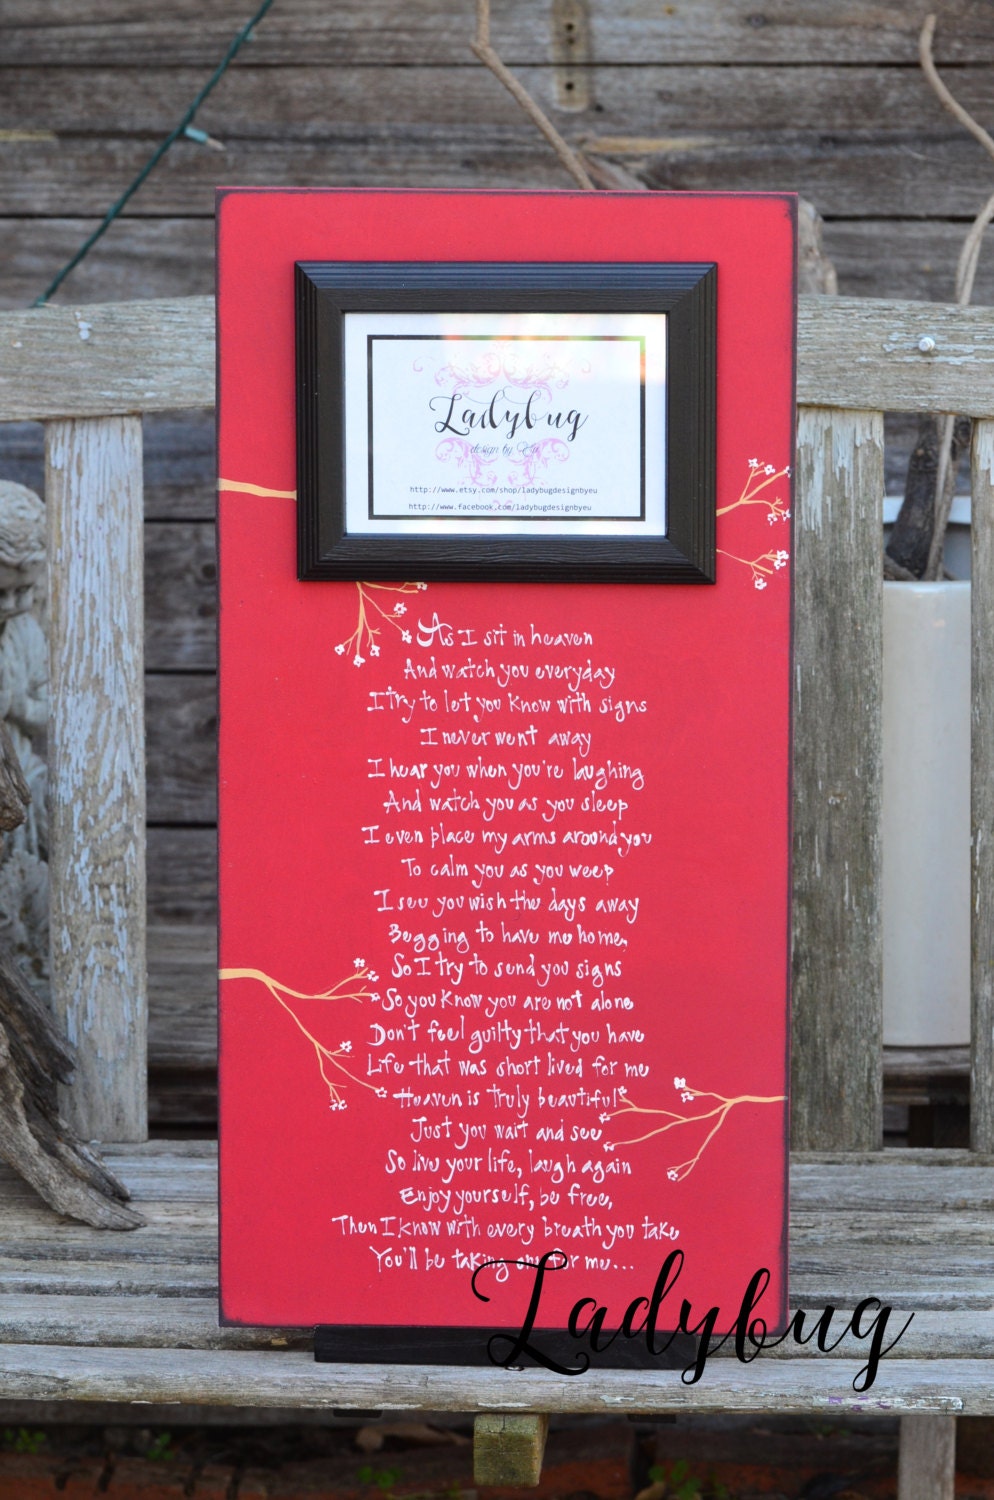 Ladybug
design by Eu
http://www.etsy.com/shop/ladybugdesignbyeu
http://www.facebook.com/ladybugdesignbyeu
As I sit in heaven
And watch you everyday
I try to let you know with signs
I never went away
I hear you when you're laughing
And watch you as you sleep
I even place my arms around you
To calm you as you weep
I see you wish the days away
Begging to have me home,
So I try to send you signs
So you know you are not alone
Don't feel guilty that you have
Life that was short lived for me
Heaven is truly beautiful
Just you wait and see
So live your life, laugh again
Enjoy yourself, be free,
Then I know with every breath you take
You'll be taking one for me...
Ladybug